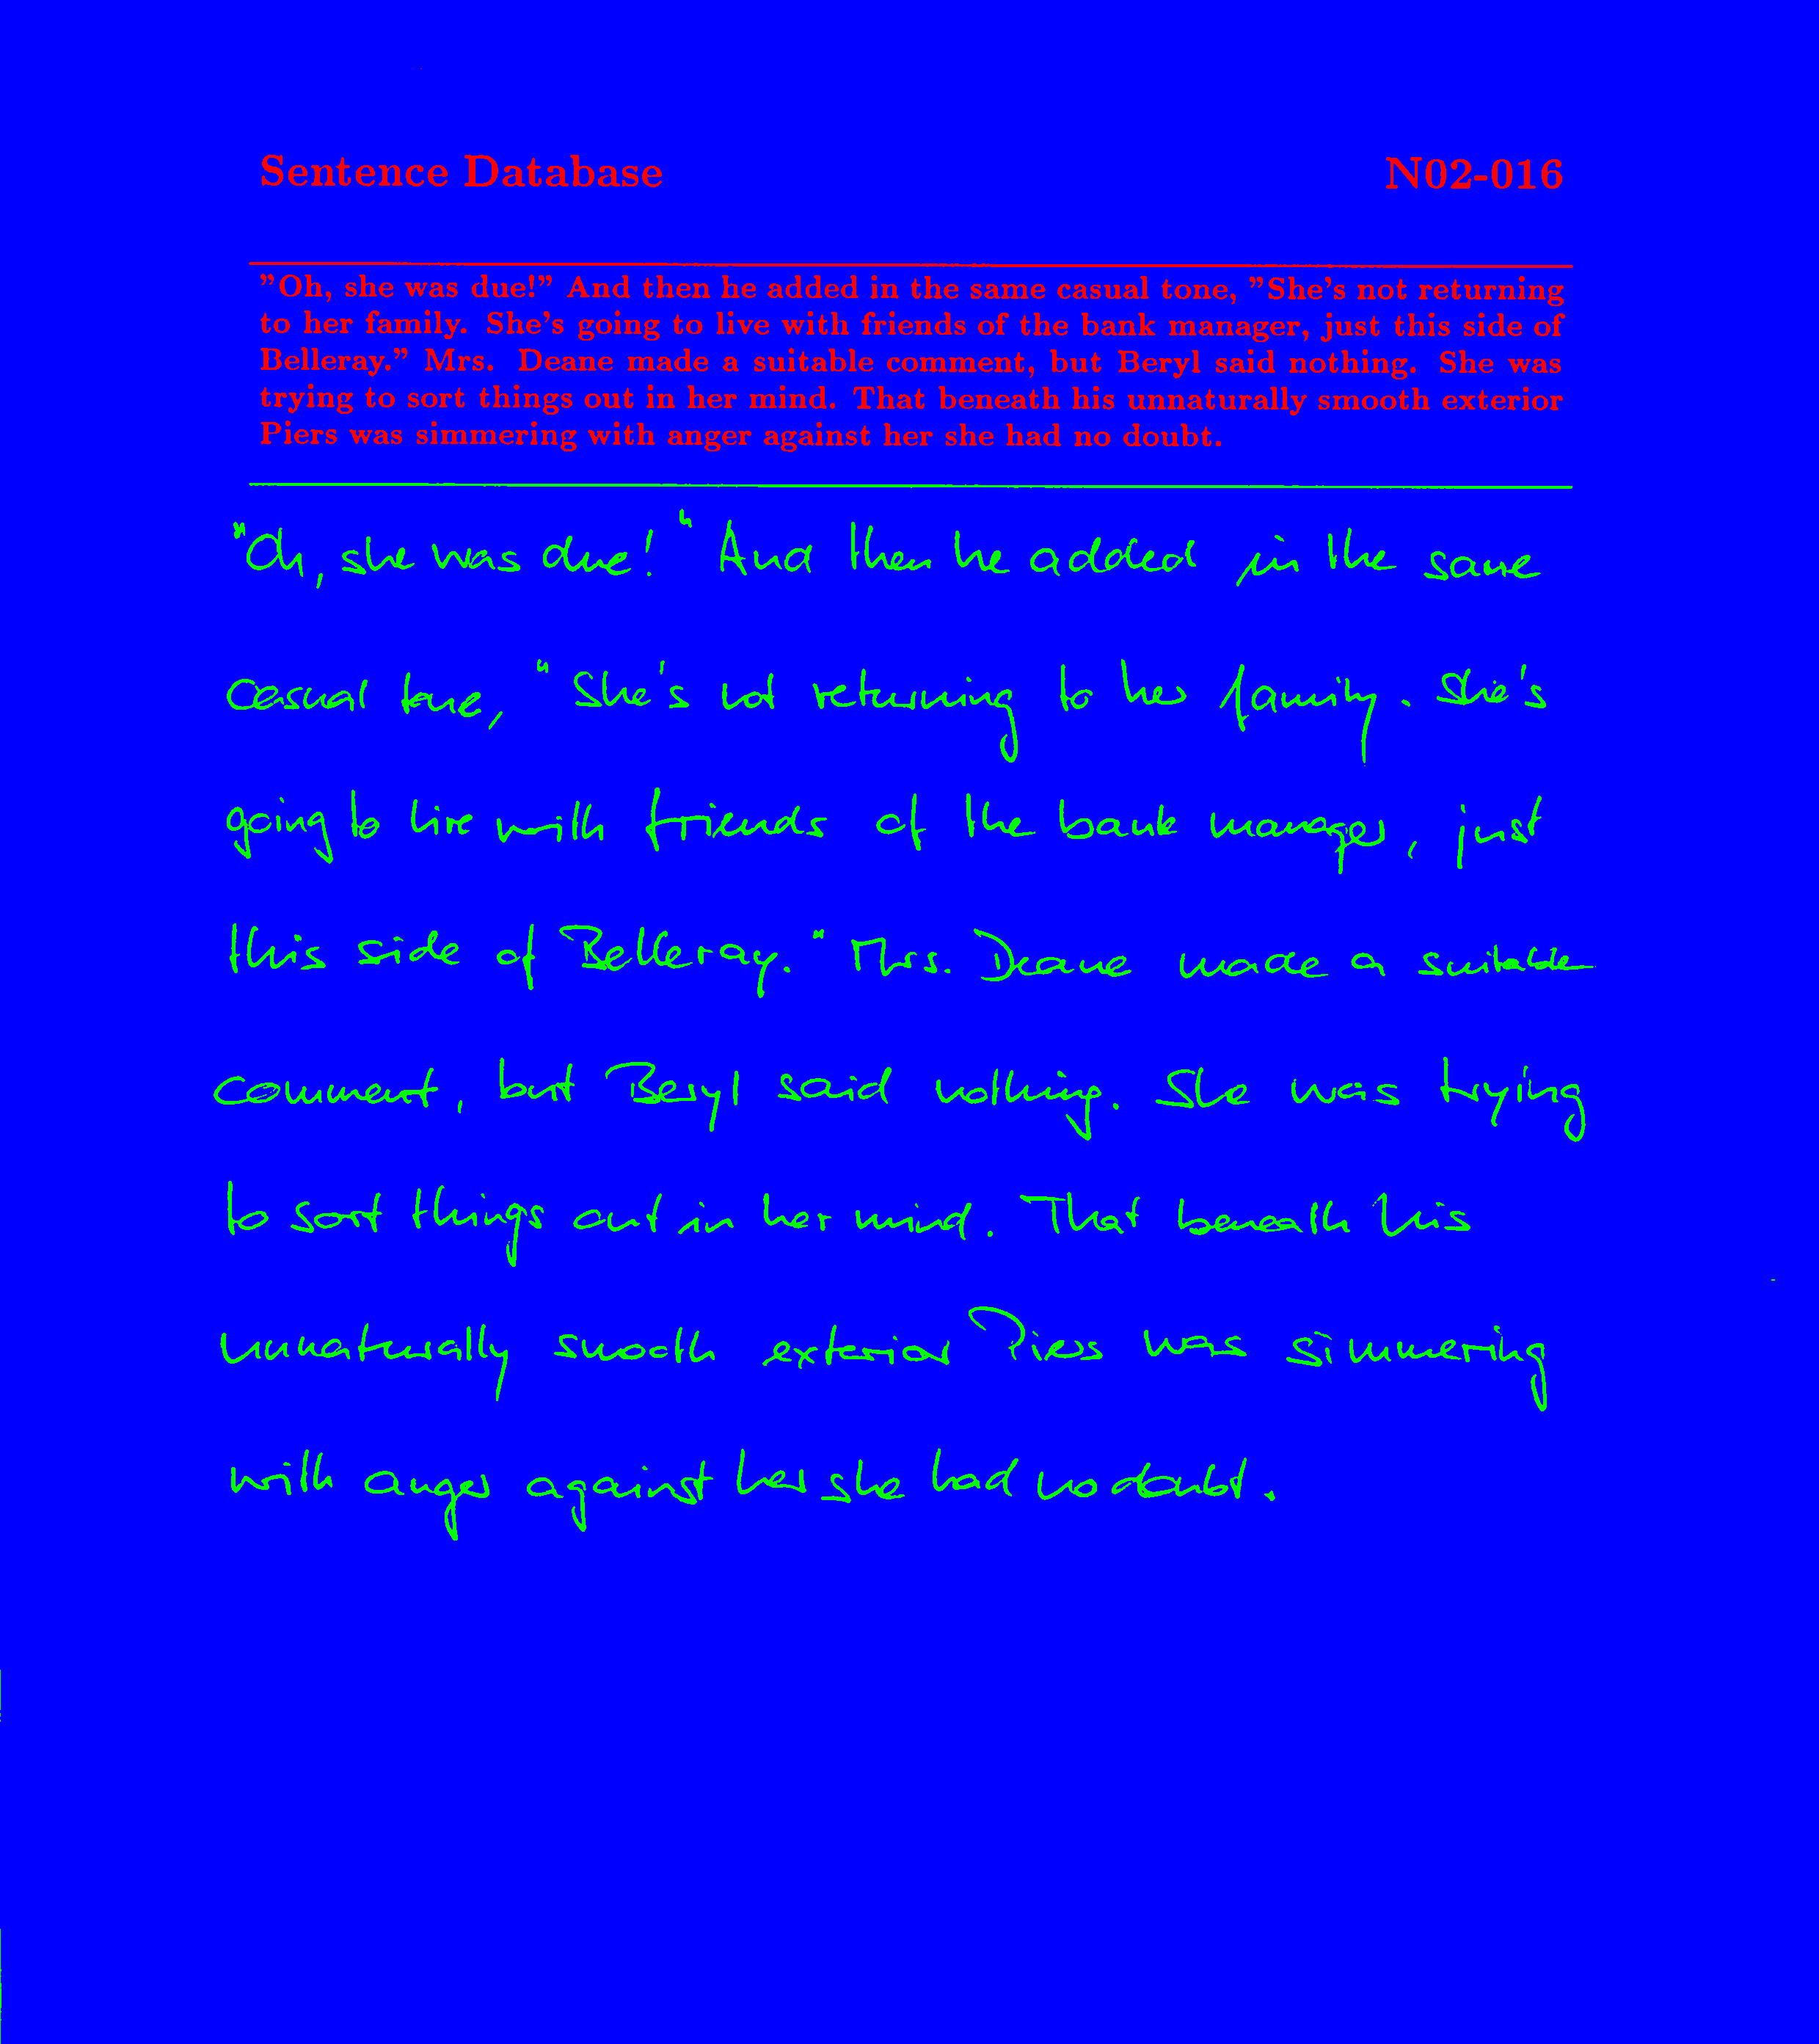 Sentence Database N02-016
"Oh, she was due!" And then he added in the same casual tone, "She's not returning
to her family. She's going to live with friends of the bank manager, just this side of
Belleray." Mrs. Deane made a suitable comment, but Beryl said nothing. She was
trying to sort things out in her mind. That beneath his unnaturally smooth exterior
Piers was simmering with anger against her she had no doubt.
"Oh, she was due!" And then he added in the same
casual tone, "She's not returning to her family. She's
going to live with friends of the bank manager, just
this side of Belleray." Mrs. Deane made a suitable
comment, but Beryl said nothing. She was trying
to sort things out in her mind. That beneath his
unnaturally smooth exterior Piers was simmering
with anger against her she had no doubt.